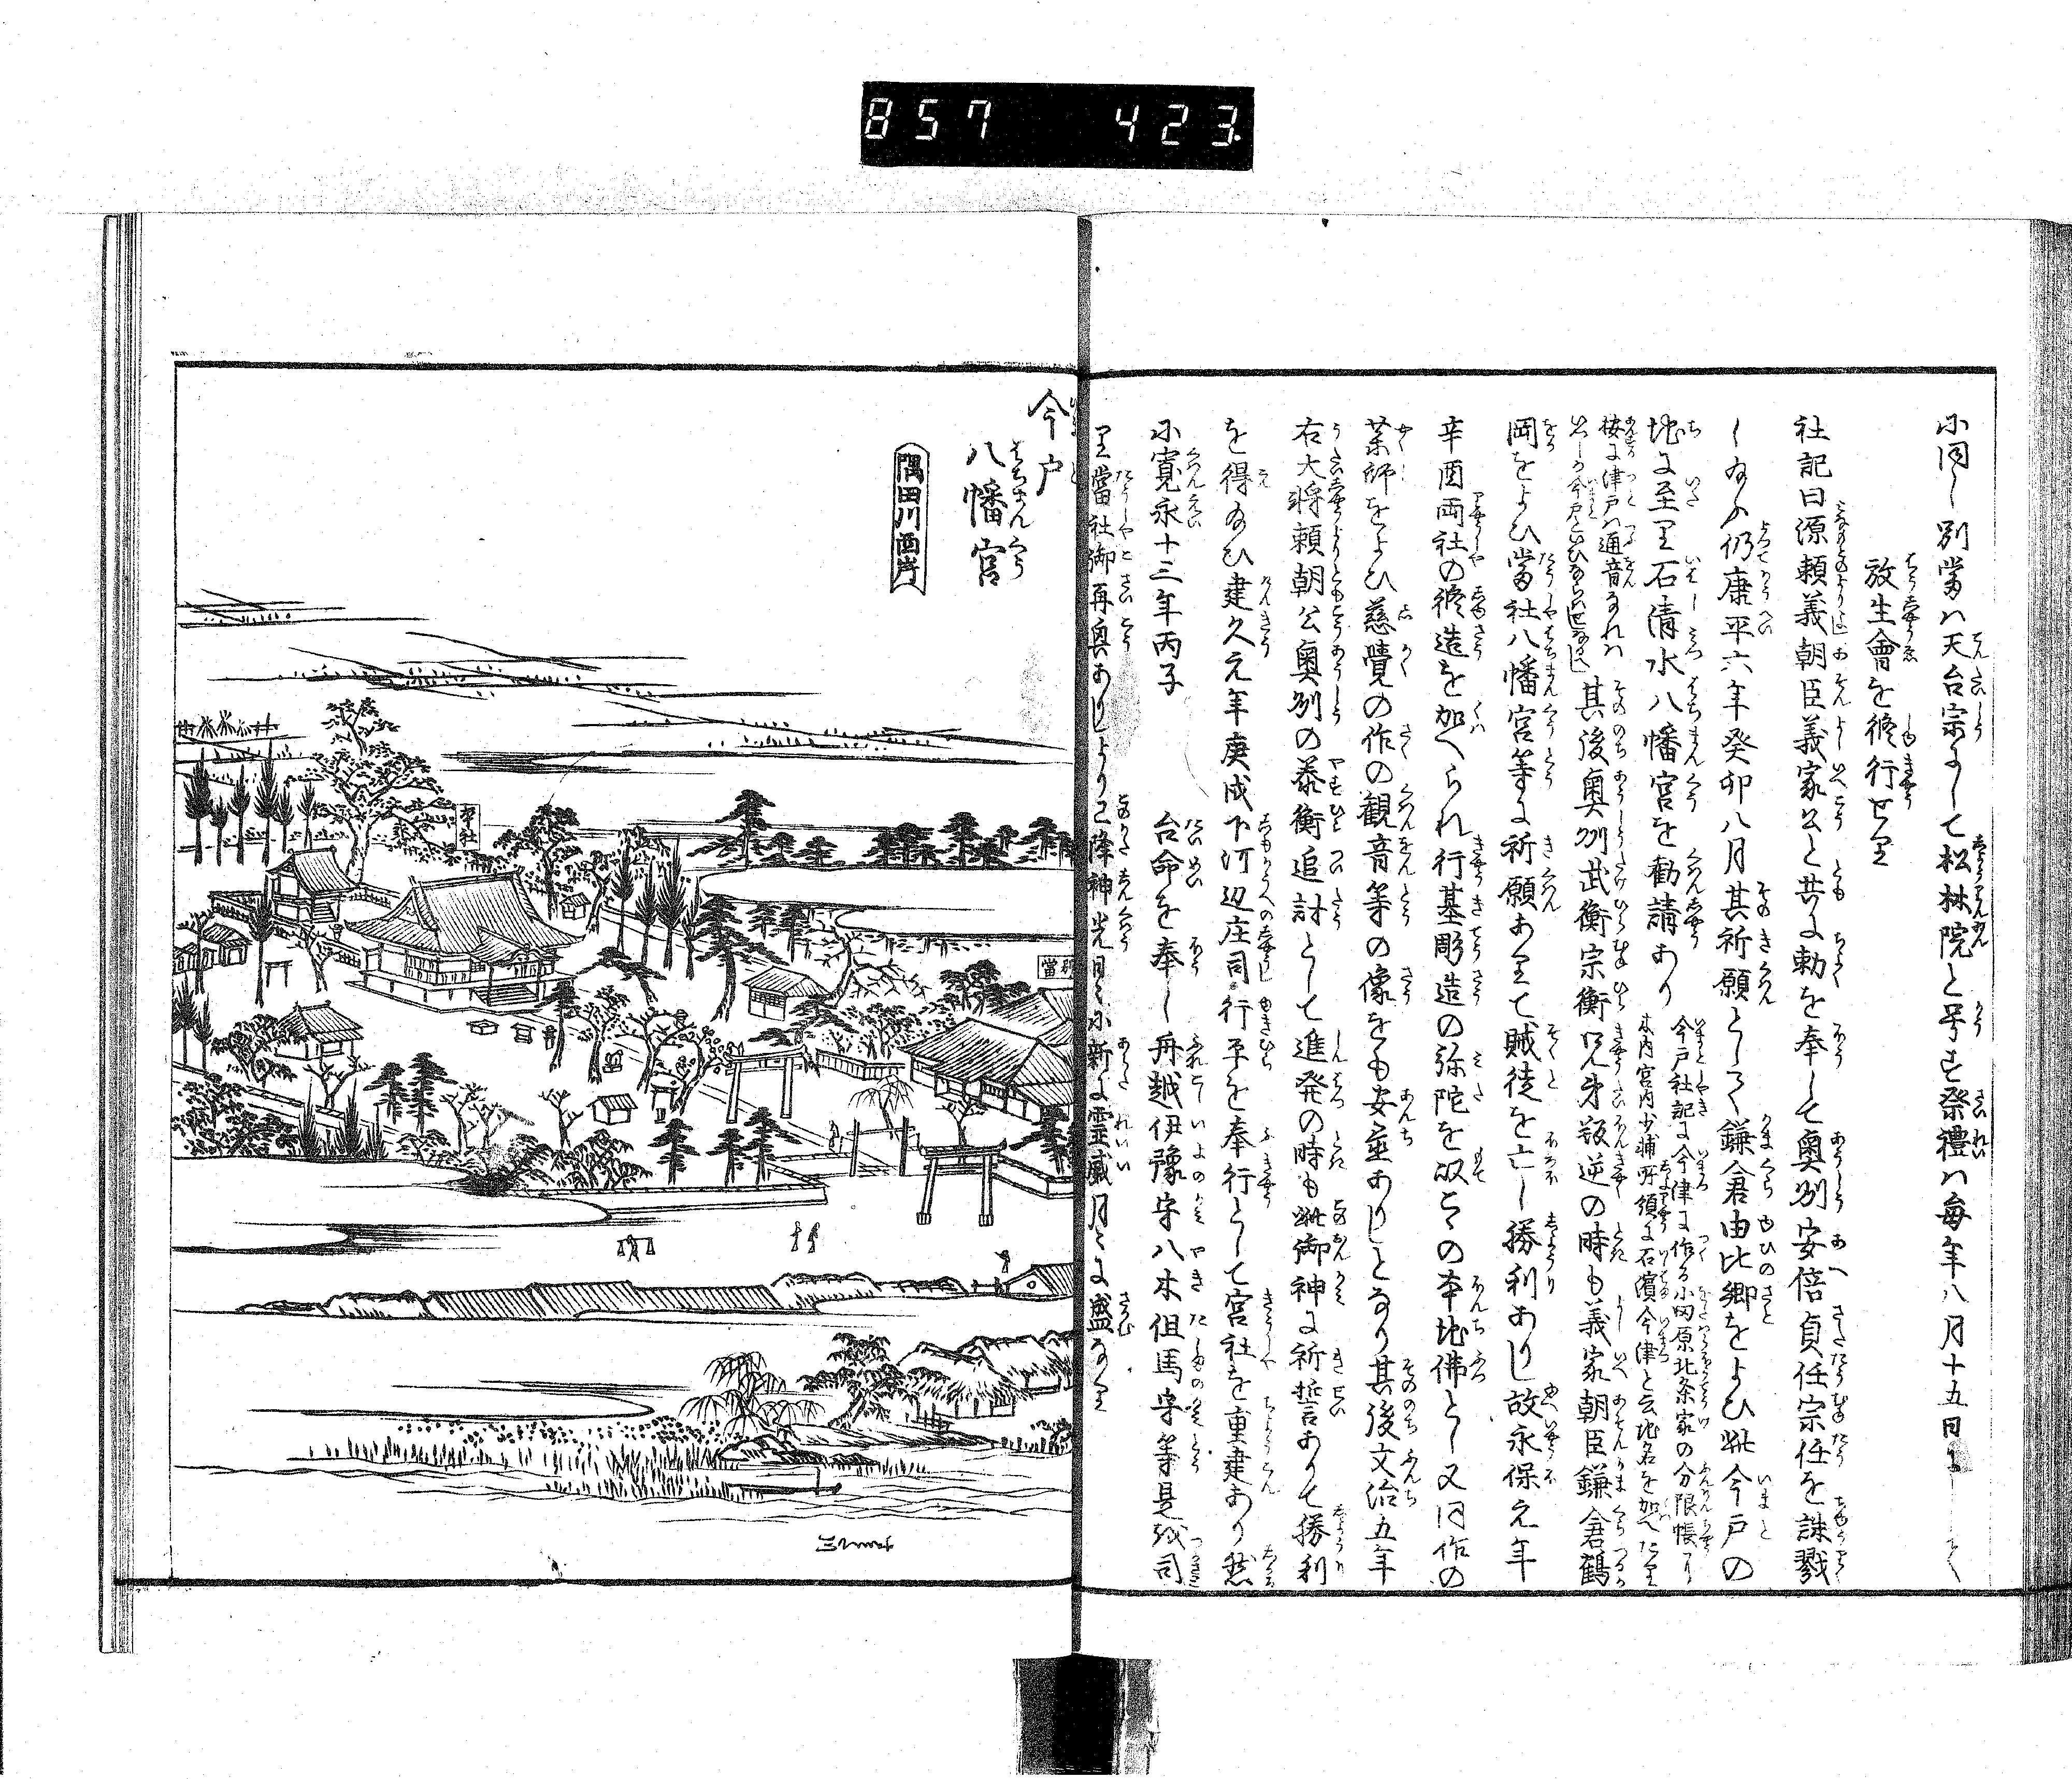 857 423
に同し別當は天台宗にして松林院と号す祭禮は毎年八月十五日に
放生會を修行せり
社記曰源頼義朝臣義家公と共に勅を奉して奥州安倍貞任宗任を誅戮
し給ふ仍康平六年癸卯八月其祈願として鎌倉由比郷をよひ此今戸の
地に至り石清水八幡宮を勧請あり
今戸社記に今津に作る小田原北条家の分限帳に
木内宮内少輔所領に石濱今津と云地名を加へたり
按に津戸は通音なれは
其後奥州武衡宗衡兄弟叛逆の時も義家朝臣鎌倉鶴
岡をよひ當社八幡宮等に祈願ありて賊徒を亡し勝利ありし故永保元年
辛酉両社の修造を加へられ行基彫造の弥陀を以ての本地佛とし又同作の
薬師をよひ慈覺の作の観音等の像をも安置ありしとなり其後文治五年
右大将頼朝公奥州の泰衡追討として進発の時も此御神に祈誓ありて勝利
を得給ひ建久元年庚戌下河辺庄司行平を奉行として宮社を重建あり然
に寛永十三年丙子 台命を奉し舟越伊豫守八木但馬守等是を司
り當社御再興ありしより已降神光日々に新に霊威月々に盛なり
今戸
八幡宮
隅田川西岸
本社
別當